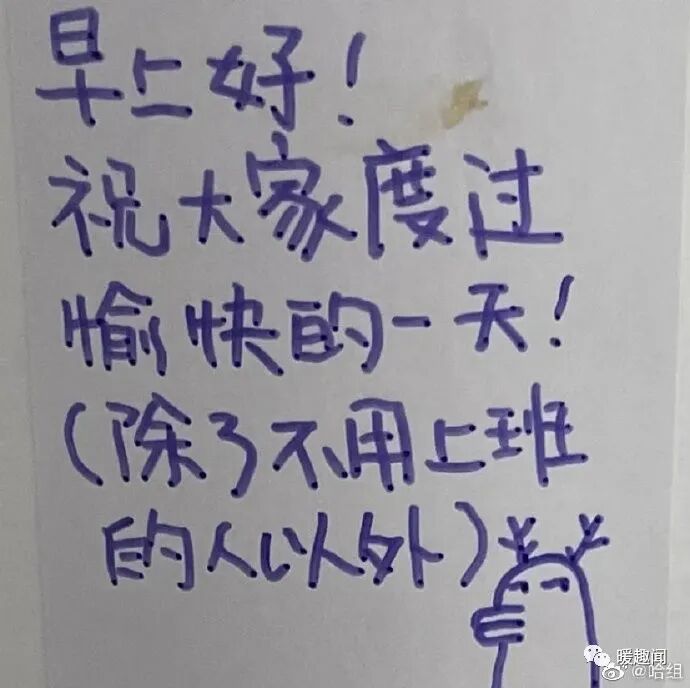 早上好！
祝大家度过
愉快的一天！
（除了不用上班
的人以外）
暖趣闻
@哈组